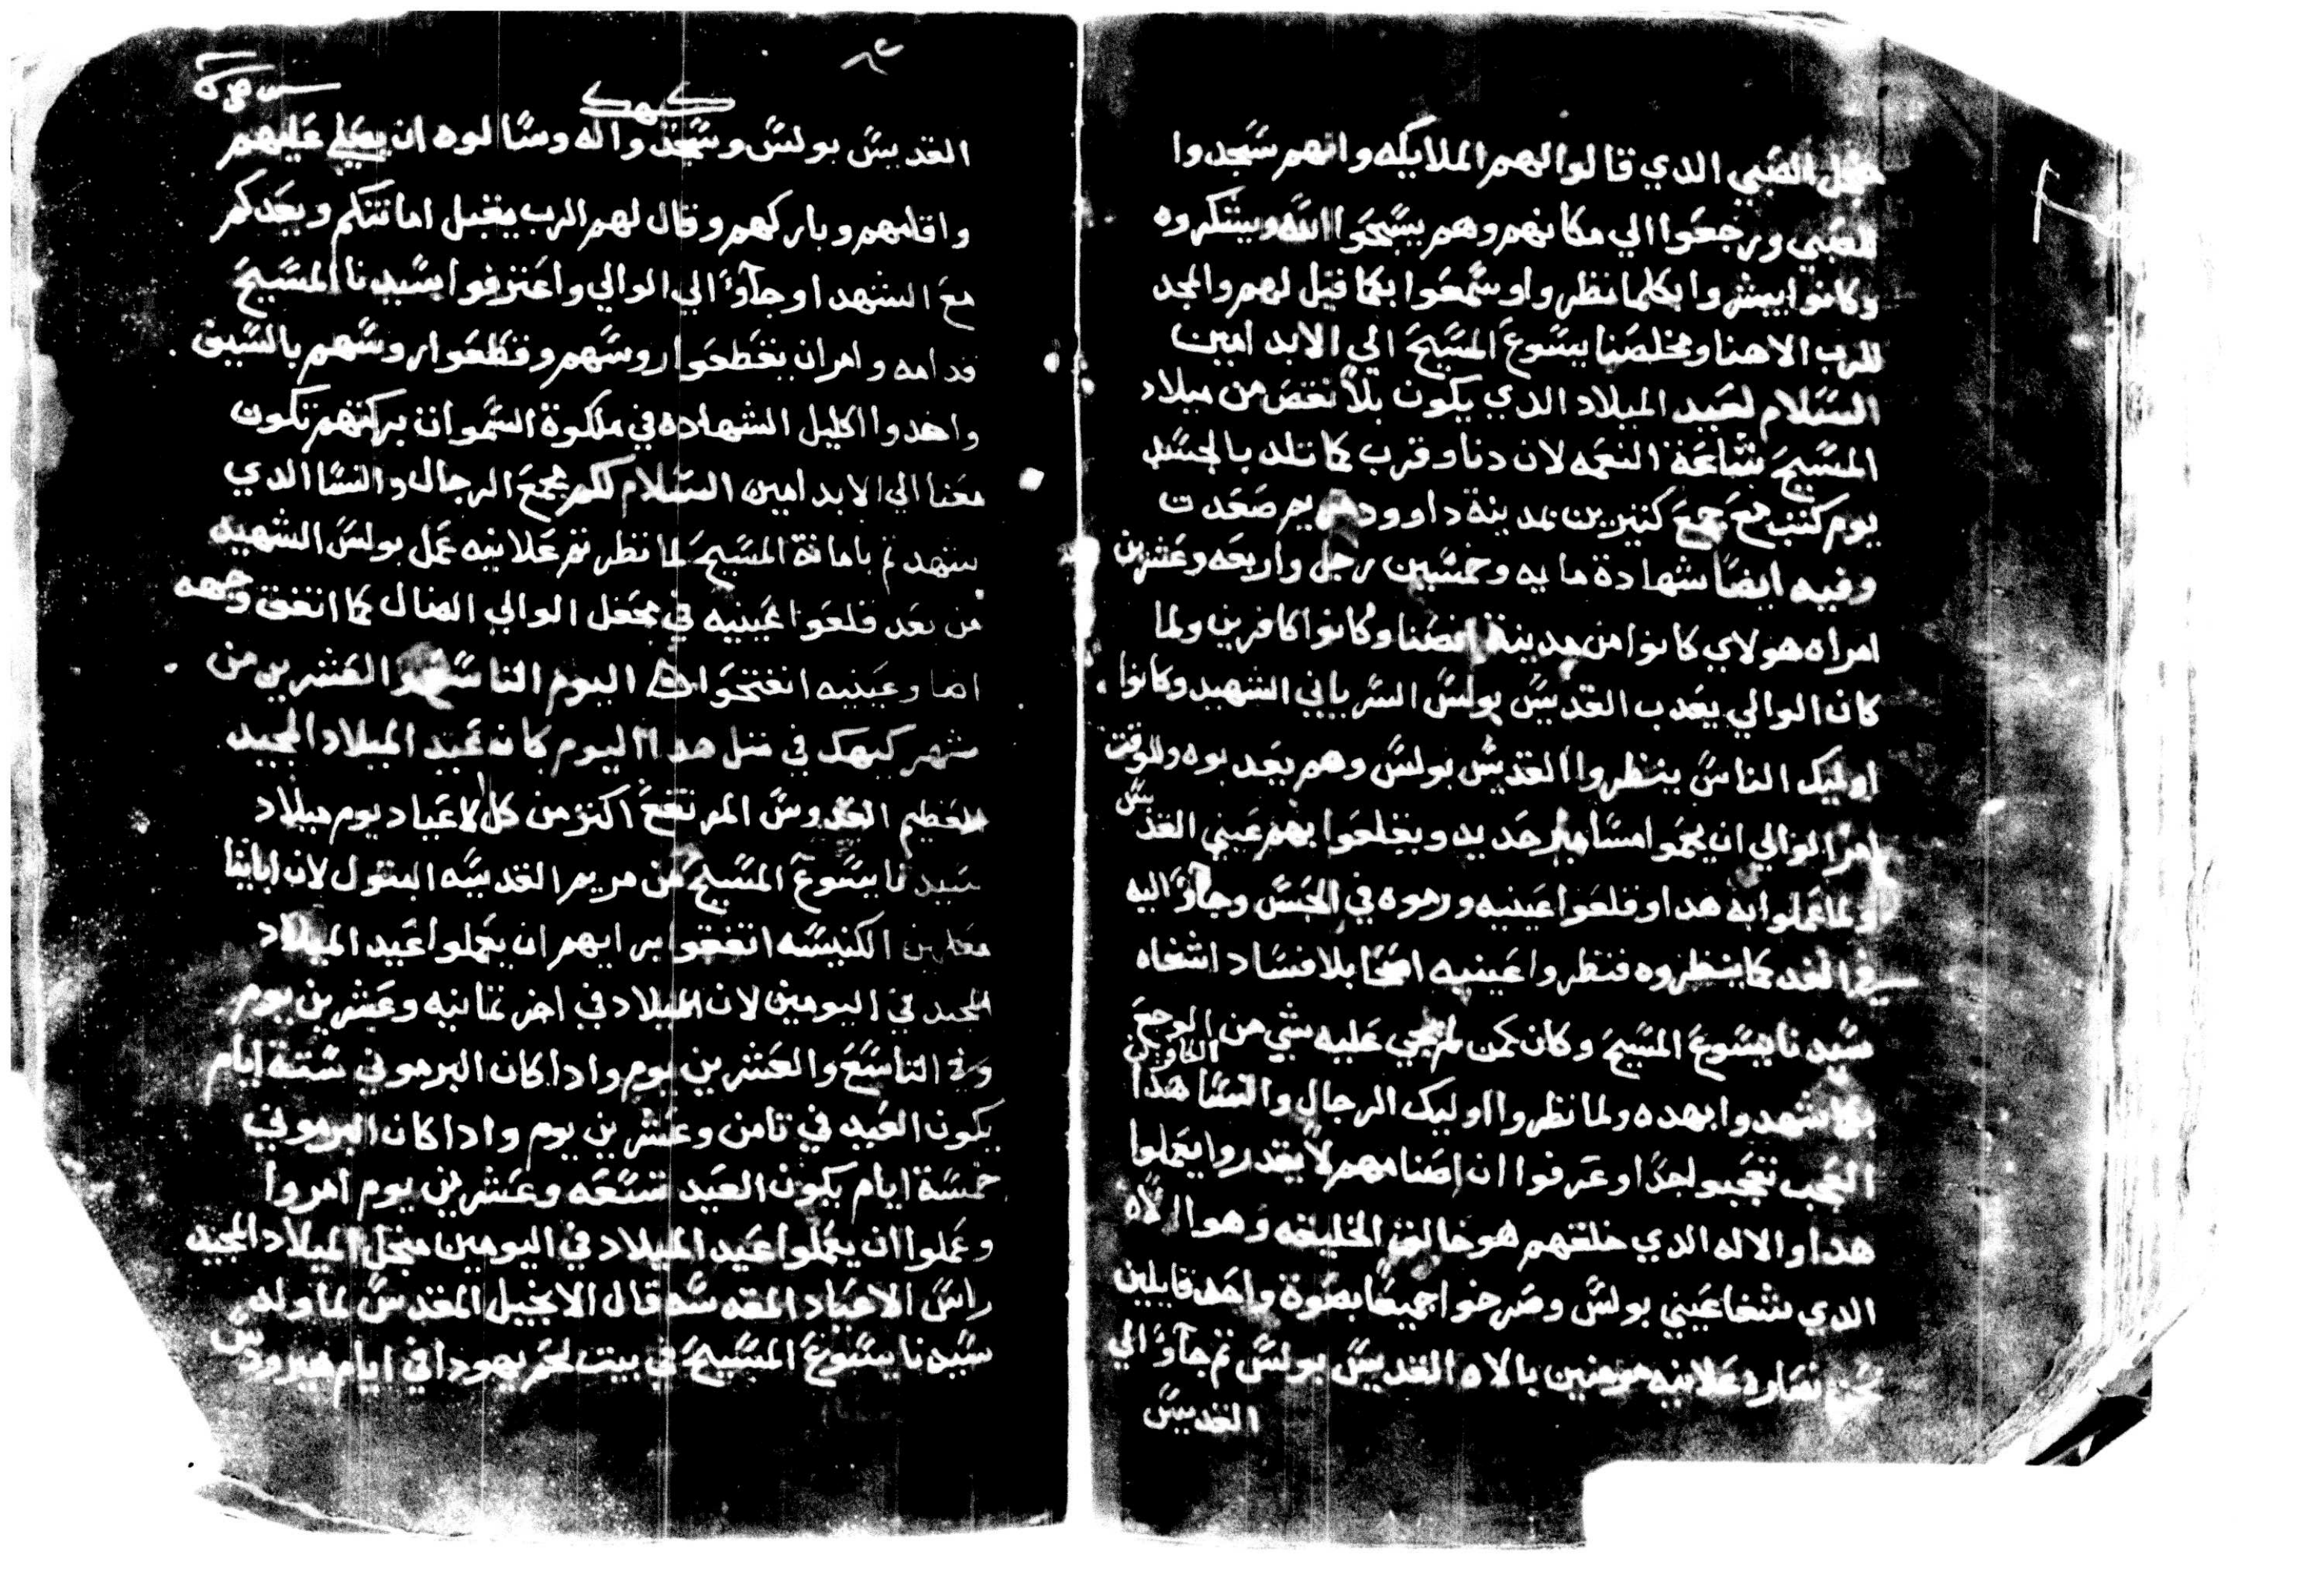 مجل الصبي الدي قالوا لهم الملايكه وانهم سجدوا
للصبي ورجعوا الي مكانهم وهم يسبحوا الله ويشكروه
وكانوا يبشروا بكلما نظروا وسمعوا بكما قيل لهم والمجد
للرب الاهنا ومخلصنا يسوع المسيح الي الابد امين
السلام لعيد الميلاد الدي يكون بلا نقص من ميلاد
المسيح شاعة النعمه لان دنا وقرب كما تلد بالجسد
يوم كتب مع جمع كتيرين بمدينة داوود مريم صعدت
وفيه ايضا شهادة مايه وخمسين رجل واربعه وعشرين
امراه هولاي كانوا من مدينة انصنا وكانوا كافرين ولما
كان الوالي يعدب القديس بولس السرياني الشهيد وكانوا
اوليك الناس ينظروا القديس بولس وهم يعدبوه وللوقت
امر الوالي ان يحموا مسامير حديد ويقلعوا بهم عيني القديس
ولما عملوا به هدا وقلعوا عينيه ورموه في الحبس وجاؤا اليه
في الغد كما ينظروه فنظروا عينيه اصحا بلا فساد اشفاه
سيدنا يسوع المسيح وكان كمن لم يجي عليه شي من الوجع
الكافرين
كما شهدوا بهده ولما نظروا اوليك الرجال والنسا هدا
العجب تعجبوا جدا وعرفوا ان اصنامهم لا يقدروا يعملوا
هدا والاله الدي خلقهم هو خالق الخليقه وهو الاله
الدي شفا عيني بولس وصرخوا جميعا بصوة واحد قايلين
نحن نصاره علانيه مومنين بالاه القديس بولس تم جاؤا الي
القديس
كيهك
القديس بولس وسجدوا له وسالوه ان يصلي عليهم
واقامهم وباركهم وقال لهم الرب يقبل امانتكم ويعدكم
مع الشهدا وجاؤا الي الوالي واعترفوا بسيدنا المسيح
قدامه وامر ان يقطعوا روسهم وقطعوا روسهم بالسيف
واخدوا اكليل الشهاده في ملكوة السموات بركتهم تكون
معنا الي الابد امين السلام لكم مجمع الرجال والنسا الدي
شهدتم بامانة المسيح لما نظرتم علانيه عمل بولس الشهيد
من بعد قلعوا عينيه في محفل الوالي الضال كما اتفق وجهه
اضا وعينيه انفتحوا اليوم التاسع والعشرين من
شهر كيهك في متل هدا اليوم كان عيد الميلاد المجيد
العظيم القدوس المرتفع اكتر من كل الاعياد يوم ميلاد
سيدنا يسوع المسيح من مريم القديسه البتول لان اباينا
معلمين الكنيسه اتفقوا برايهم ان يعملوا عيد الميلاد
المجيد في اليومين لان الميلاد في اخر تمانيه وعشرين يوم
وفي التاسع والعشرين يوم وادا كان البرموني ستة ايام
يكون العيد في تامن وعشرين يوم وادا كان البرموني
خمسة ايام يكون العيد تسعه وعشرين يوم امروا
وعملوا ان يعملوا عيد الميلاد في اليومين مجل الميلاد المجيد
راس الاعياد المقدسه قال الانجيل المقدس لما ولد
سيدنا يسوع المسيح في بيت لحم يهودا في ايام هيرودس